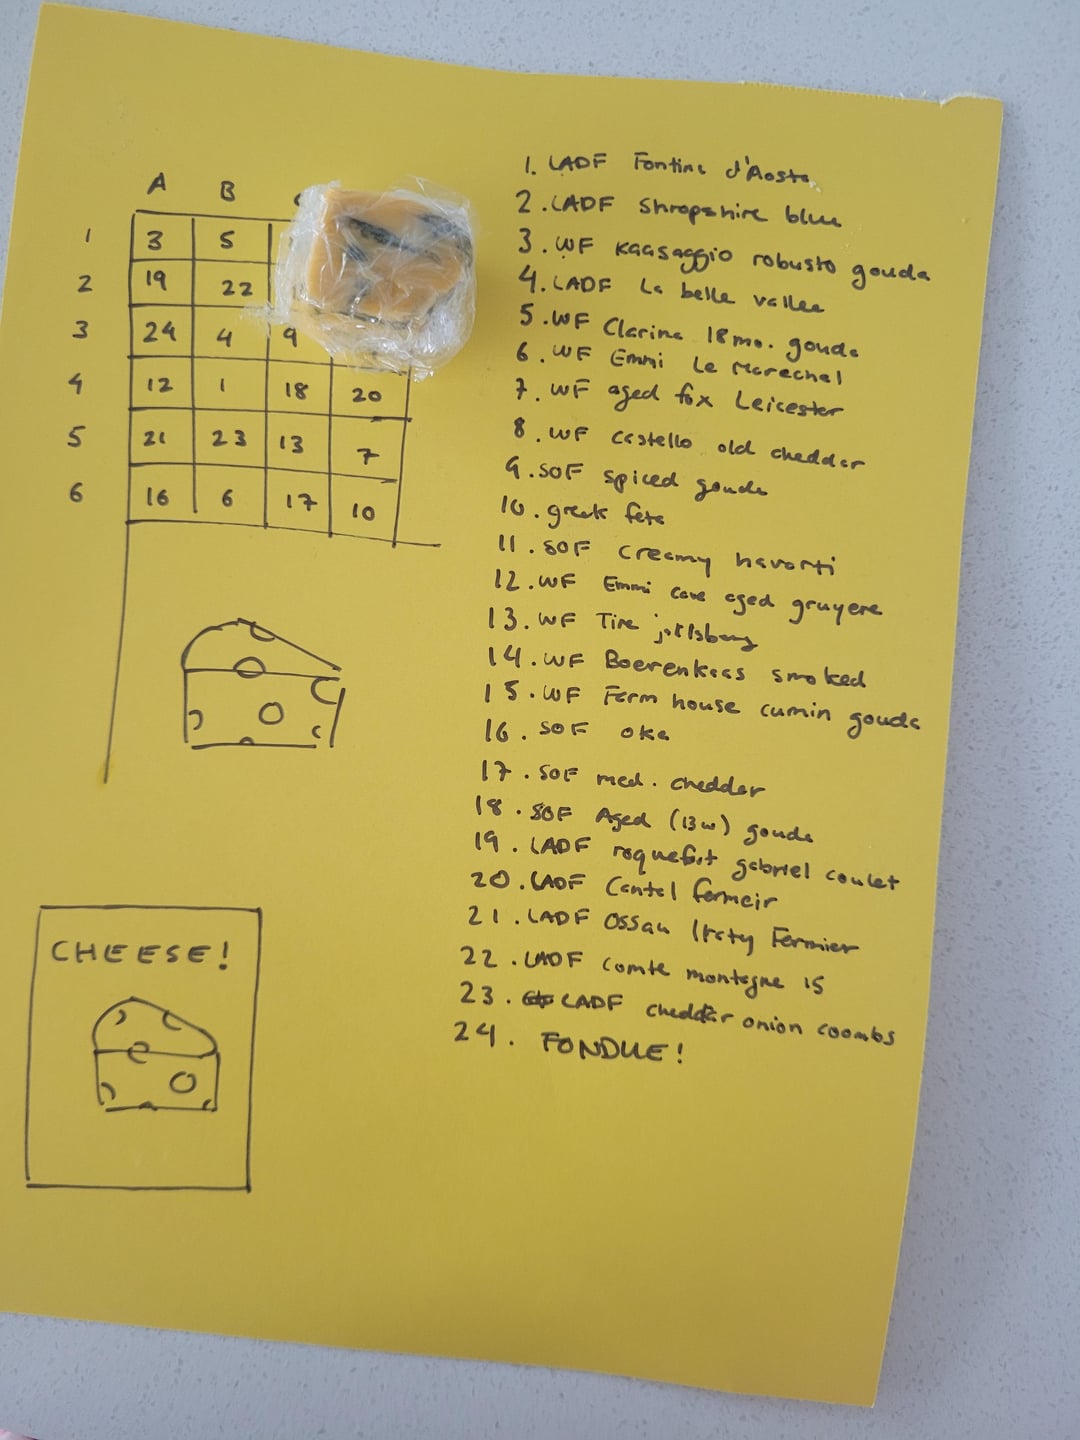 A B
1 3 5
2 19 22
3 24 4 9
4 12 1 18 20
5 21 23 13 7
6 16 6 17 10
CHEESE!
1. LADF Fontina d'Aosta
2. LADF Shropshire blue
3. WF kaasaggio robusto gouda
4. LADF La belle vallee
5. WF Clarina 18mo. gouda
6. WF Emmi Le Marechal
7. WF aged fox Leicester
8. WF castello old cheddar
9. SOF spiced gouda
10. greek feta
11. SOF creamy havarti
12. WF Emmi cave aged gruyere
13. WF Tine
14. WF Boerenkaas smoked
15. WF Farm house cumin gouda
16. SOF oka
17. SOF med. cheddar
18. SOF Aged (13w) gouda
19. LADF roquefort gabriel coulet
20. LADF Cantal fermeir
21. LADF Ossau Iraty Fermier
22. LADF comte montagne 15
23. LADF cheddar onion coombs
24. FONDUE!